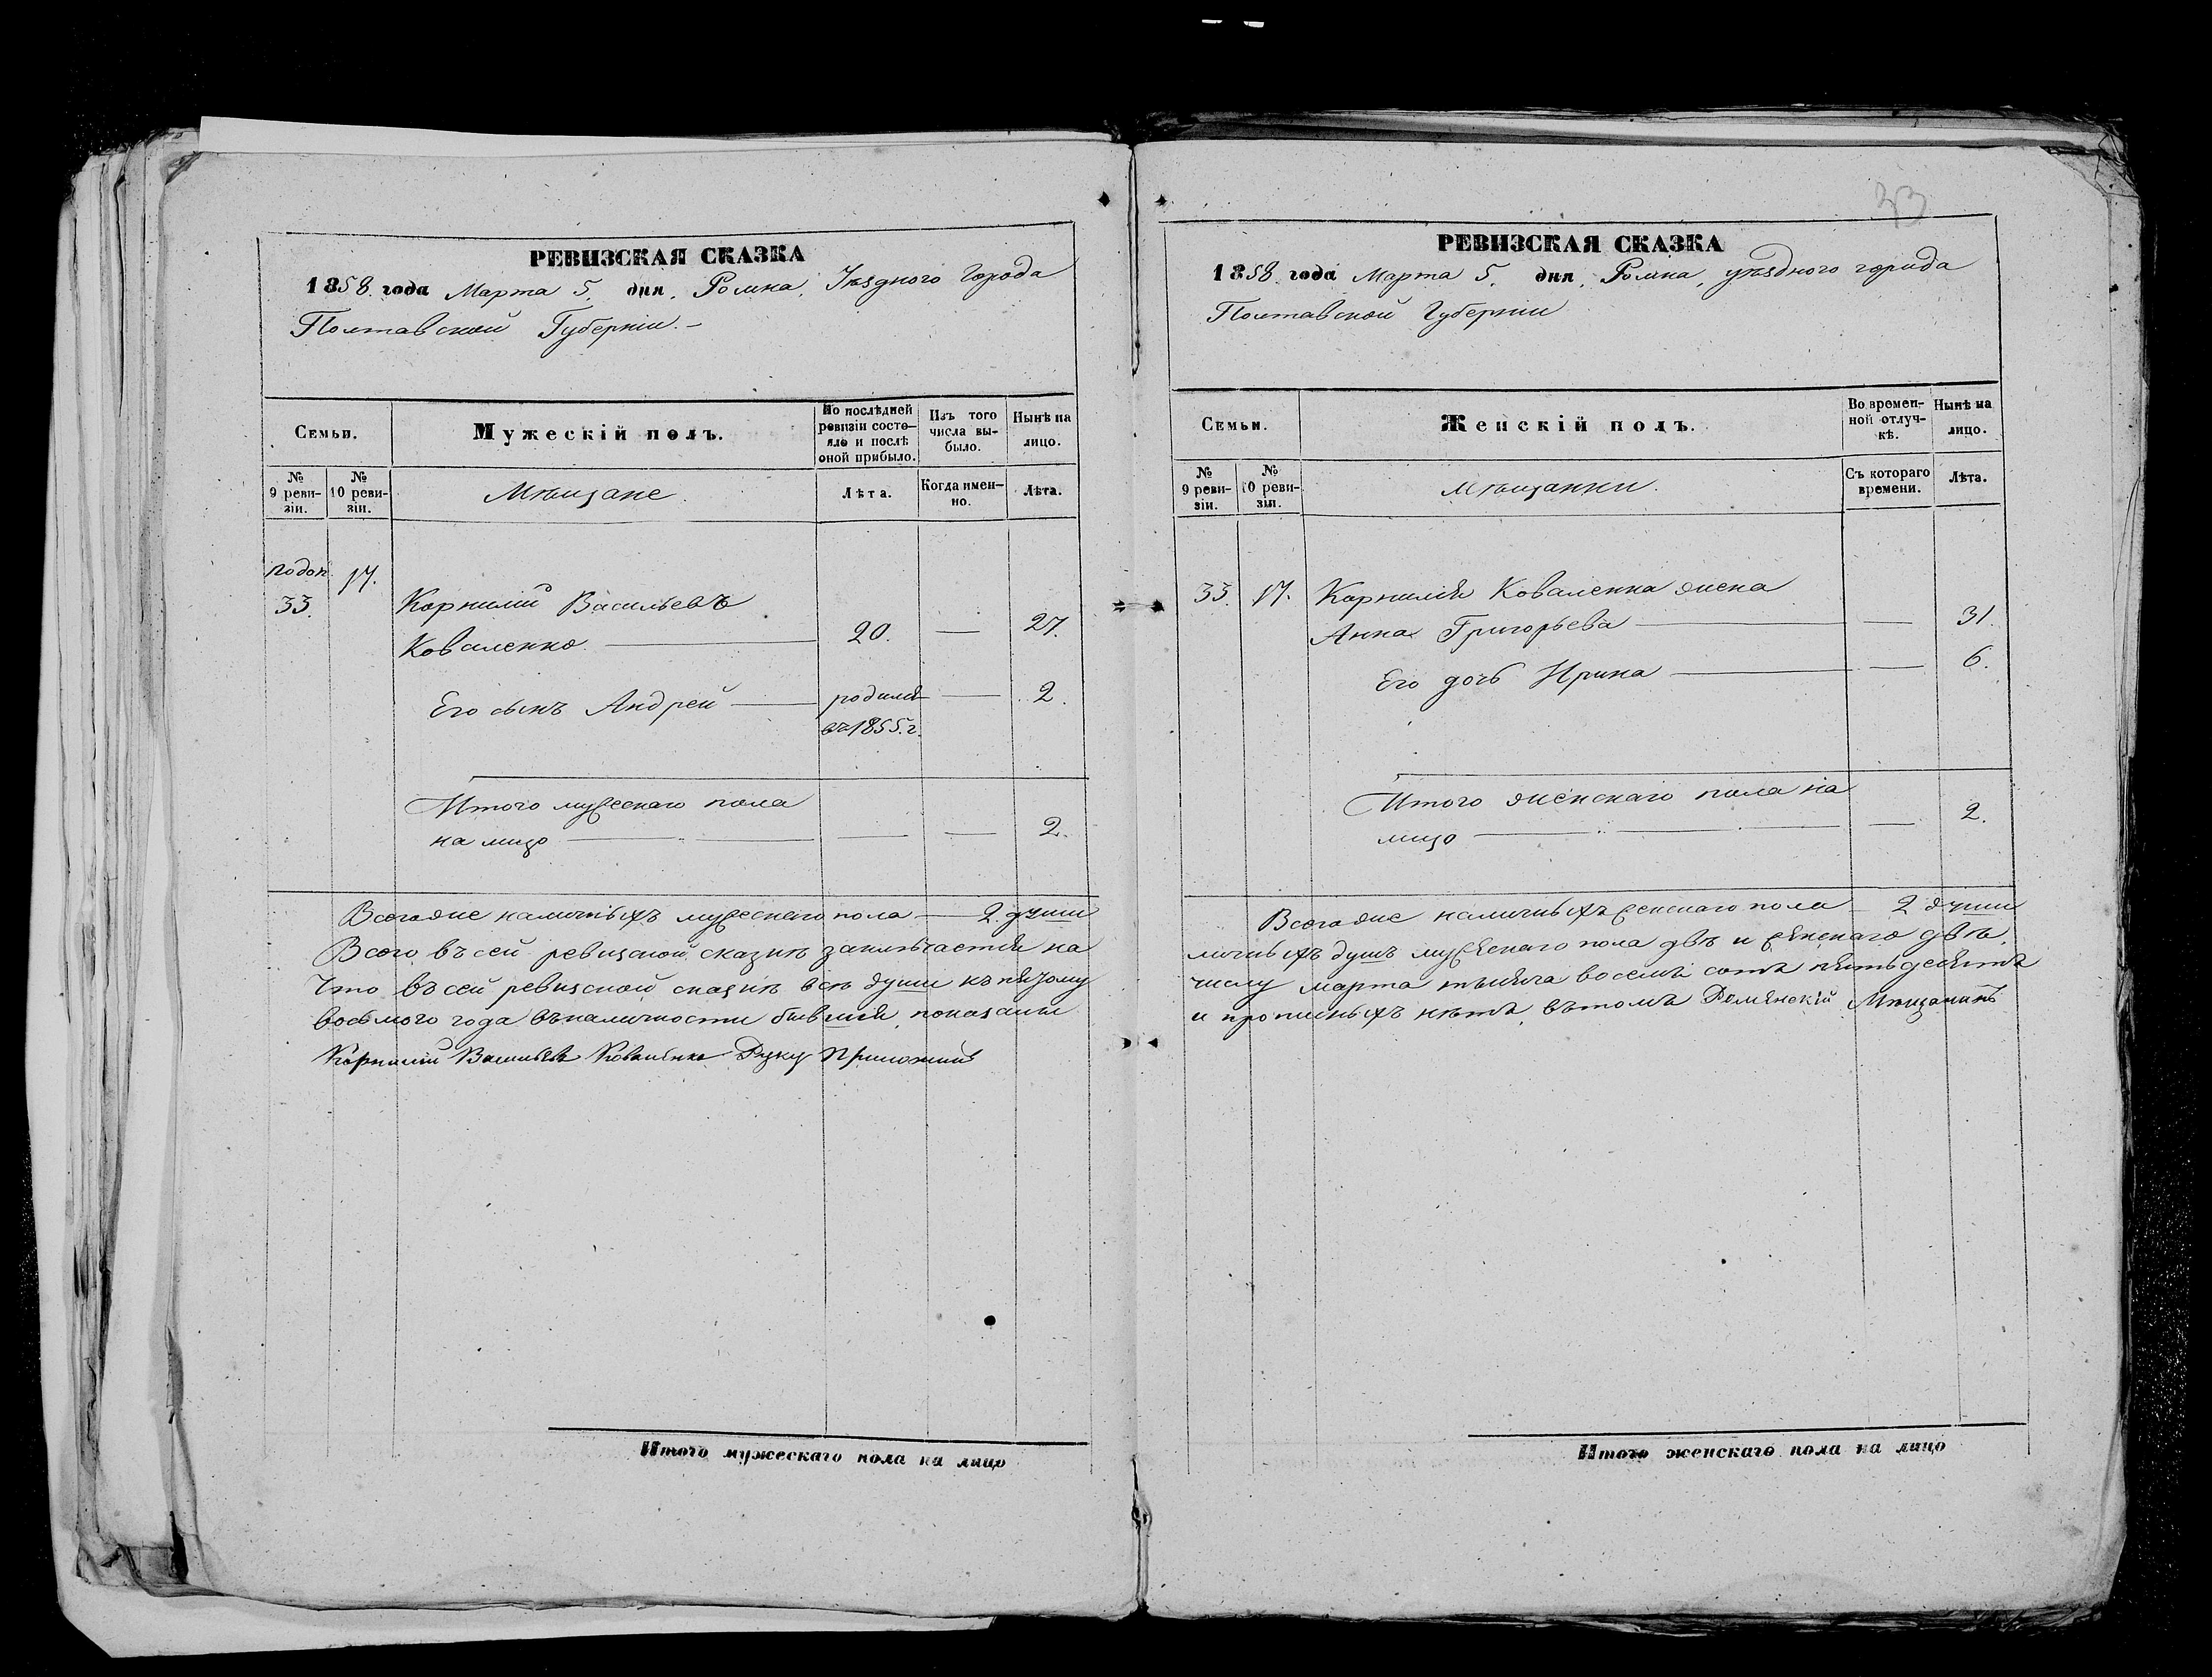 РЕВИЗСКАЯ СКАЗКА
1858 года Марта 5. дня, Ромна, Уѣзднаго Города
Полтавской Губерніи. –
Семьи.
Мужескій полъ.
По послѣдней ревизіи состояло и послѣ оной прибыло.
Изъ того числа выбыло.
Нынѣ на лицо.
№ 9 ревизіи.
№ 10 ревизіи.
Мѣщане.
Лѣта.
Когда именно.
Лѣта.
33.
17.
Корнилій Васильевъ
Коваленко — 20. — 27.
Его сынъ Андрей — родился — 2.
въ 1855. г.
Итого мужескаго пола
на лицо — — — 2.
Всего же наличныхъ мужескаго пола — 2. души
Всего въ сей ревизской сказкѣ заключается на
Что въ сей ревизской сказкѣ всѣ души къ пятому
восьмого года въ наличности бывшія, показаны
Корнилій Васильевъ Коваленко Руку Приложилъ
33
РЕВИЗСКАЯ СКАЗКА
1858. года Марта 5. дня, Ромна, уѣзднаго города
Полтавской Губерніи
Семьи.
Женскій полъ.
Во временной отлучкѣ.
Нынѣ на лицо.
№ 9 ревизіи.
№ 10 ревизіи.
Мѣщанки.
Съ котораго времени.
Лѣта.
33. 17. Корнилія Коваленка жена
Анна Григорьева — — 31.
Его дочь Ирина — — 6.
Итого женскаго пола на
лицо — — 2.
Всего же наличныхъ женскаго пола — 2 души
личныхъ душъ мужескаго пола двѣ и женскаго двѣ.
числу марта тысяча восемь сотъ пятьдесятъ
и прописныхъ нѣтъ, въ томъ Роменскій Мѣщанинъ
Итого мужескаго пола на лицо
Итого женскаго пола на лицо